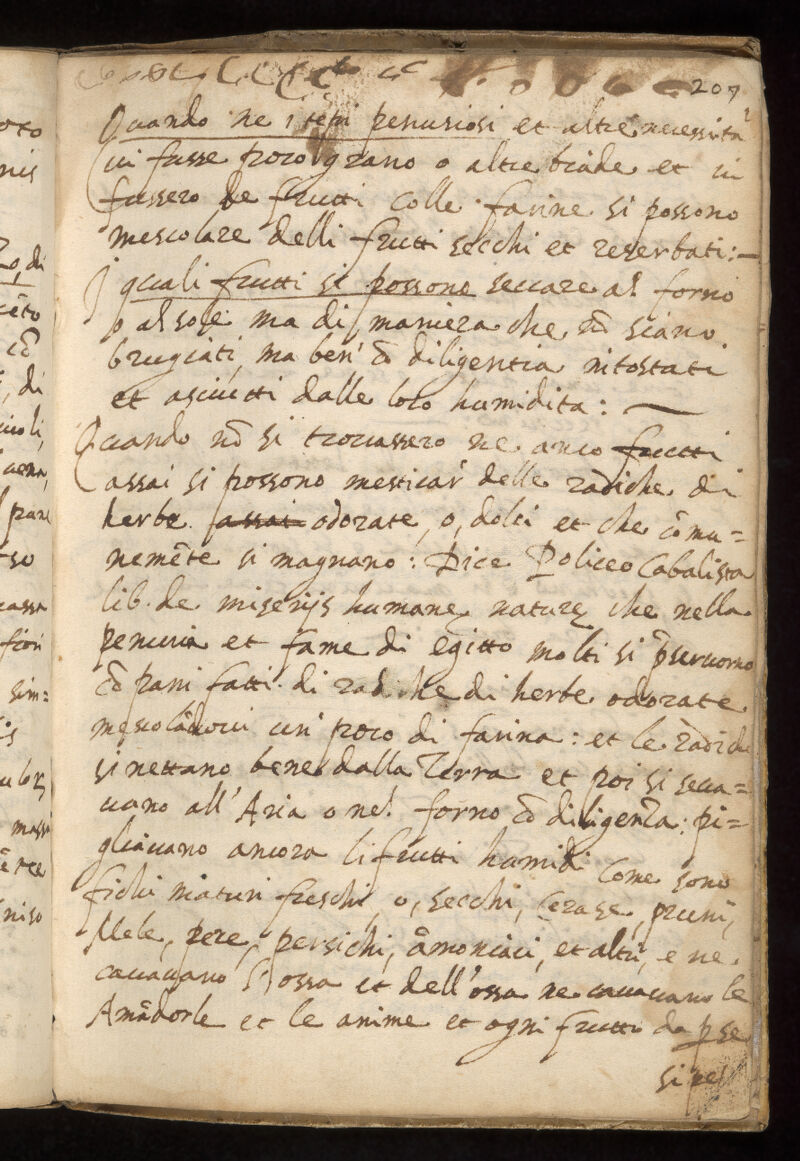 207
Quando ne i tēpi penuriosi et altre necessita
vi fusse poco grano o altre biade et vi
fussero de frutti colle farine si possono
mescolare delli frutti secchi et reserbati: —
J quali frutti si possono seccare al forno
o al sole ma di maniera che nō siano
brugiati, ma ben' cō diligentia ritostati
et asciutti dalle loro humidita: —
Quando nō si trovassero ne anco frutti
assai si possono mesticar' delle radiche di
herbe assai odorate, o, dolci et che cōmu=
nemēte si magnano: Dice Policeo Cabalista
lib. de miserijs humanę naturę che nella
penuria et fame di egitto molti si p̄servorno
cō pani fatti di radiche di herbe odorate
mescolādovi un' poco di farina: et le radiche
si nettano bene dalla Terra et poi si secca=
vano all'Aria o nel forno cō diligenza: pi=
gliavano ancora li frutti humidi come sono
fichi maturi freschi, o, secchi, Cerase, pruni,
Mele, pere, persichi, āmoniaci, et altri, e ne
cavavano l'ossa et dell'ossa ne cavavano le
Amādorle et le anime et ogni frutto da p se
si